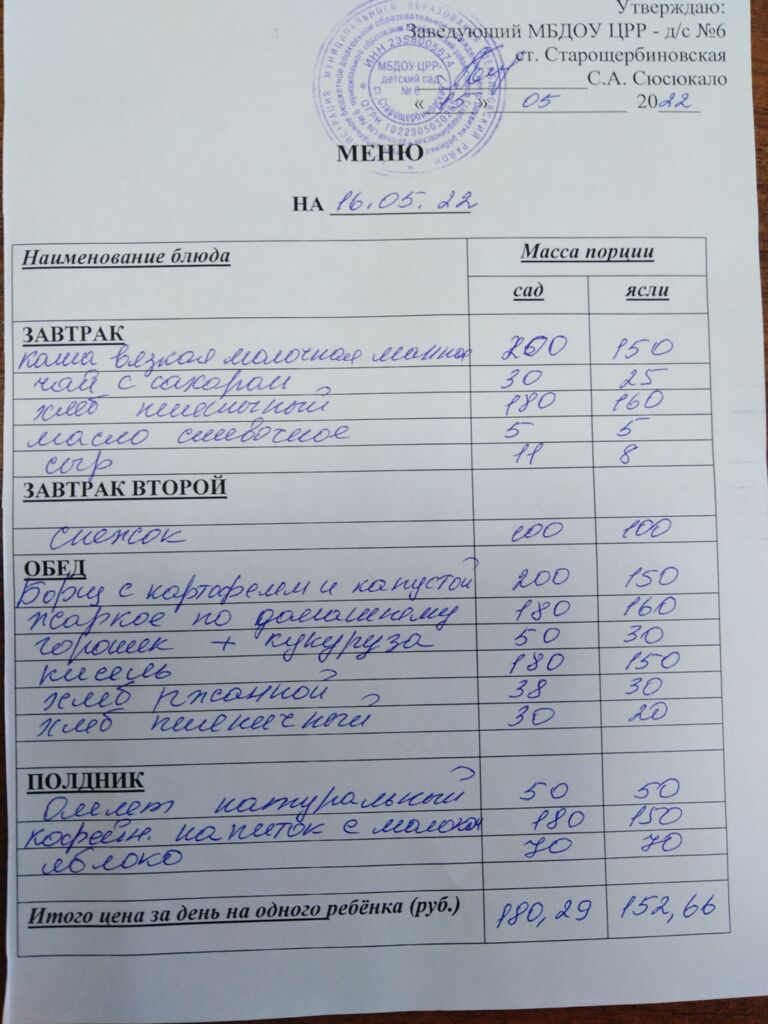 Утверждаю:
Заведующий МБДОУ ЦРР - д/с №6
ст. Старощербиновская
С.А. Сюсюкало
« » 05 2022
ИНН 2358005674
МБДОУ ЦРР-
детский сад
№ 6
ст. Старощербиновская
МЕНЮ
НА 16.05.22
Наименование блюда Масса порции
сад ясли
ЗАВТРАК
каша вязкая молочная манная 200 150
чай с сахаром 30 25
хлеб пшеничный 180 160
масло сливочное 5 5
сыр 11 8
ЗАВТРАК ВТОРОЙ
снежок 100 100
ОБЕД
Борщ с картофелем и капустой 200 150
жаркое по домашнему 180 160
горошек + кукуруза 50 30
кисель 180 150
хлеб ржанной 38 30
хлеб пшеничный 30 20
ПОЛДНИК
Омлет натуральный 50 50
кофейн. напиток с молоком 180 150
яблоко 70 70
Итого цена за день на одного ребёнка (руб.) 180,29 152,66